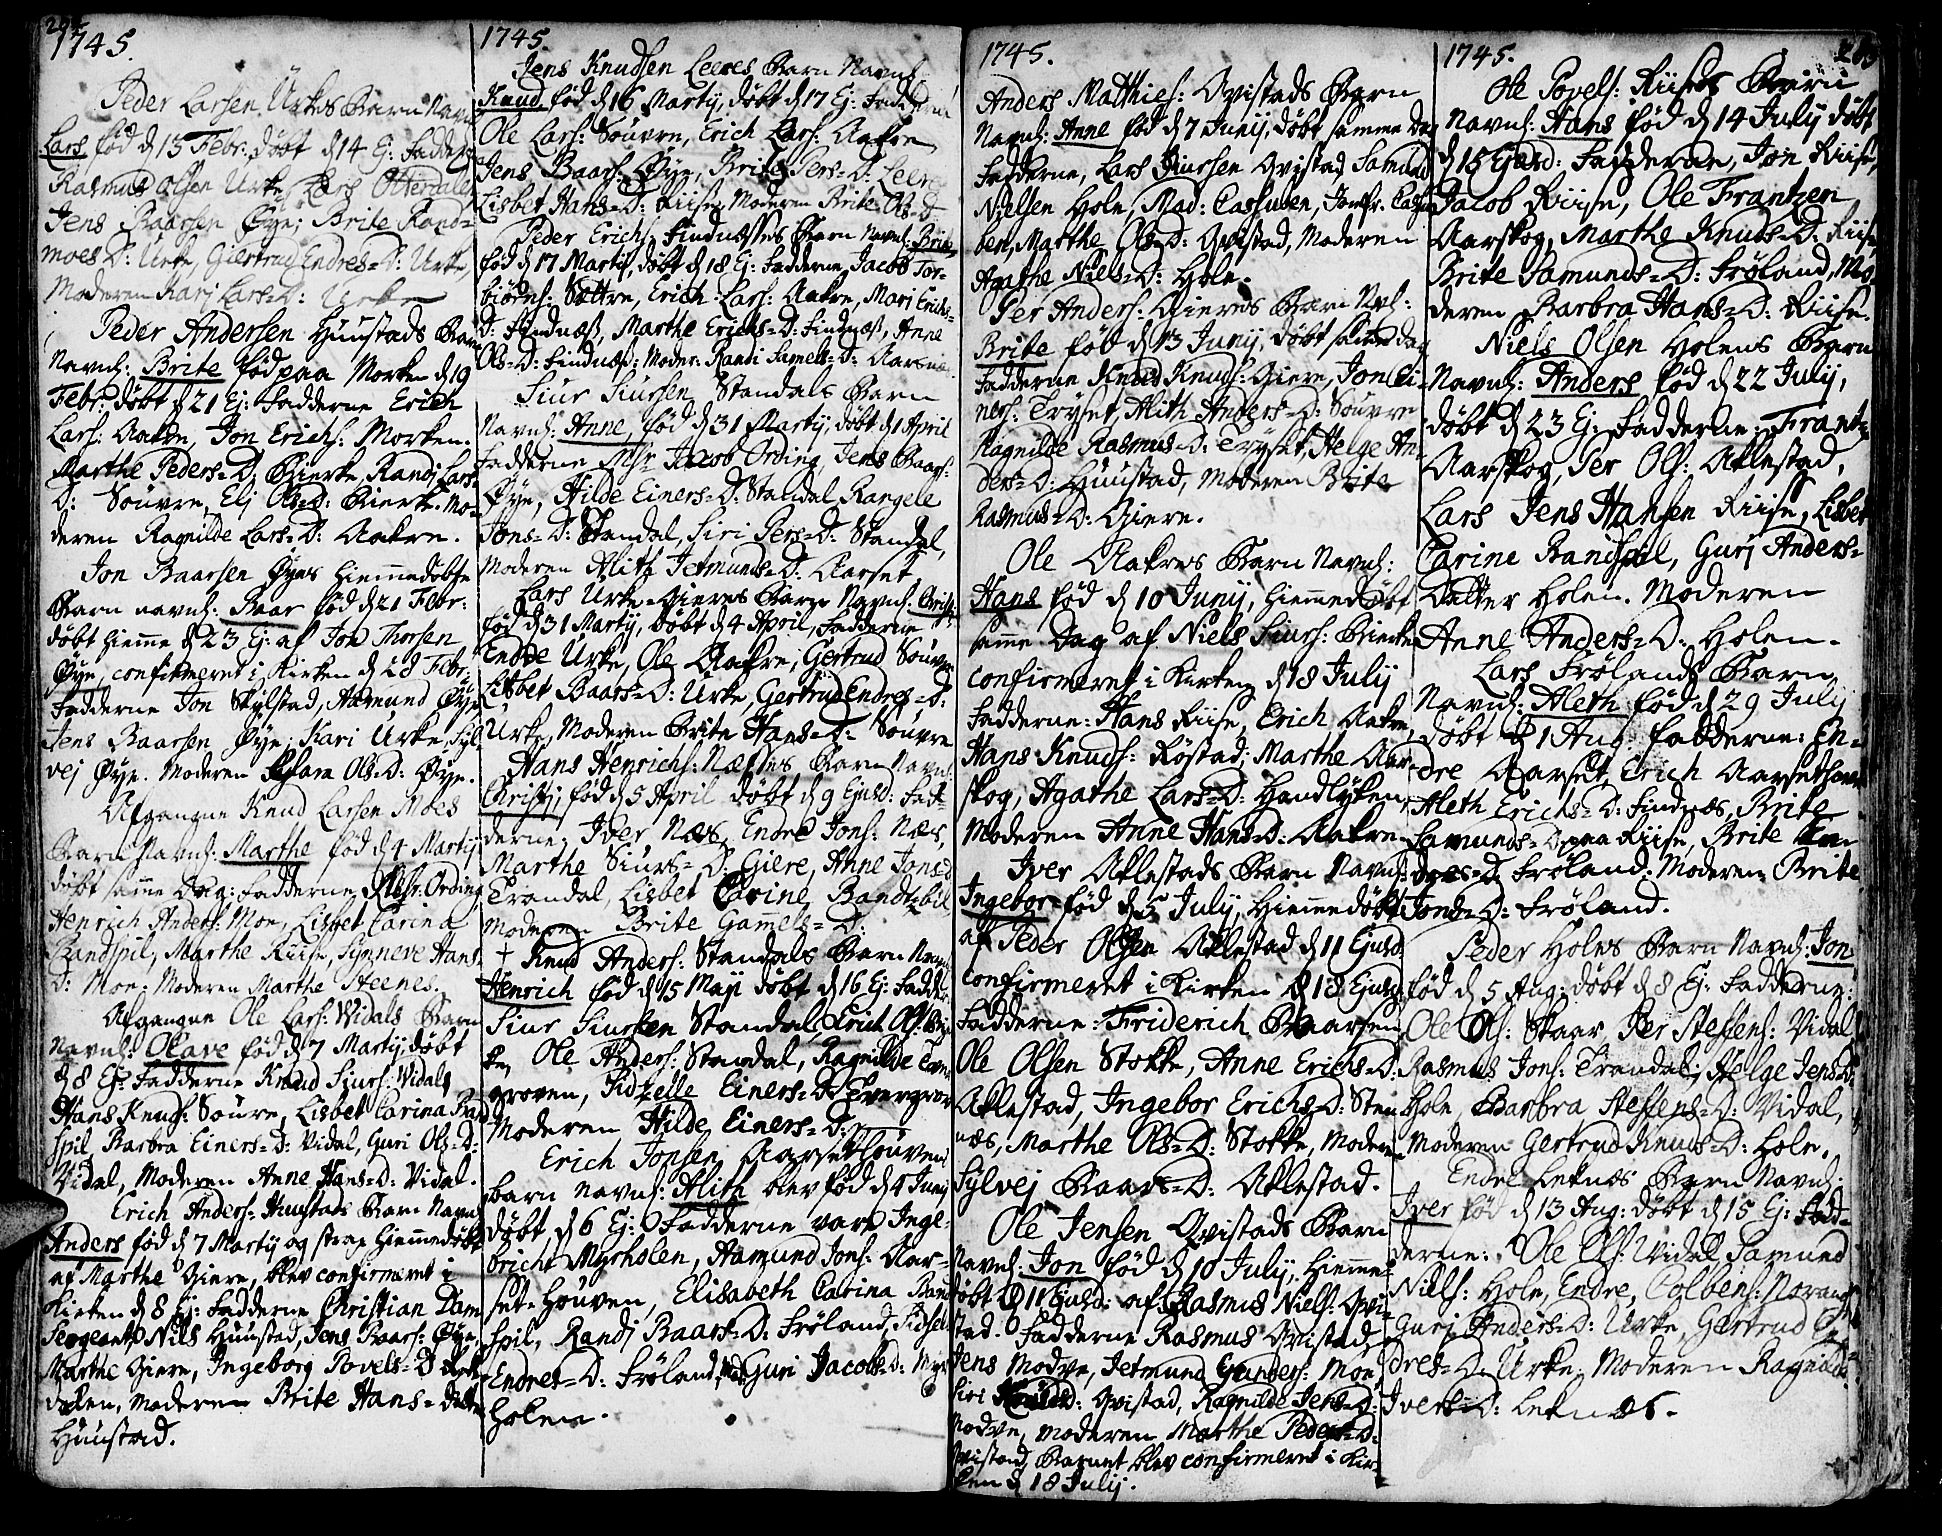 1745.
Peder Larsen Urkes Barn Navnl:
Lars fød d 13 Febr: døbt d 14 Ej: Fadderne
Rasmus Olsen Urke, Lars Otterdalen
Jens Baarsen Øye, Brite Rand=
moes D: Urke, Giertrud Endres=D: Urke,
Moderen Karj Lars=D: Urke
Peder Andersen Huustads Barn
Navnl: Brite fød paa Morken d 19
Febr: døbt d 21 Ej: Fadderne Erich
Lars: Aakre, Jon Erichs: Morken.
Marthe Peders=D: Bierke, Randj Lars=
D: Souvre, Elj Ols=D: Bierke. Mo=
deren Ragnilde Lars=D: Aakre.
Jon Baarsen Øyes hiemmedøbte
Barn navnl: Baar fød d 21 Febr:
døbt hieme d 23 Ej: af Jon Thorsen
Øye, confirmeret i Kirken d 28 Febr:
Fadderne Jon Skylstad, Aamund Øye
Jens Baarsen Øye, Kari Urke, Syl=
vej Øye. Moderen Ols=D: Øye.
Afgangne Knud Larsen Moes
Barn Navnl: Marthe fød d 4 Martij
døbt samme Dag: Fadderne, Msr: Ording
Henrich Anders: Moe, Lisbet Carina
Bandspil, Marthe Riise, Synneve Hans
D: Moe: Moderen Marthe Steenes.
Afgangne Ole Lars: Vidals Barn
Navnl: Olave fød d 7 Martij døbt
d 8 Ej: Fadderne Knud Siurs: Vidal,
Hans Knuds: Soure, Lisbet Carina Band
spil, Barbra Einers=D: Vidal, Guri Ols=D:
Vidal, Moderen Anne Hans=D: Vidal.
Erich Anders: Huustads Barn Navnl
Anders fød d 7 Martij og strax hiemmedøbt
af Marthe Giere, blev confirmeret i
Kirken d 8 Ej: Fadderne Christian Dam
Sergeant, Nils Huustad, Jens Baars: Øye,
Marthe Giere, Ingeborg Povels=D:
dalen, Moderen Brite Hans=Datter
Huustad.
1745.
Jens Knudsen Leeres Barn Navnl:
Knud fød d 16 Martij, døbt d 17 Ej: Fadderne
Ole Lars: Souvre, Erich Lars: Aakre
Jens Baars: Øye, Brite Pers=D: Leere
Lisbet Hans=D: Riise, Moderen Brite Ols=D
Peder Erichs: Findnæsses Barn Navnl: Brite
fød d 17 Martij, døbt d 18 Ej: Fadderne, Jacob Tor=
biørns: Sættre, Erich Lars: Aakre, Mari Erichs=
D: Findnæss, Marthe Erichs=D: Findnæss, Anne
Ols=D: Findnæss: Moder: Randi Samels=D: Aarsnæs
Siur Siursen Standals Barn
Navnl: Anne, fød d 31 Martij, døbt d 1 April
Fadderne Msr Jacob Ording, Jens Baars:
Øye, Hilde Einers=D: Standal Rangele
Jons=D: Standal, Siri Pers=D: Standal,
Moderen Alith Jetmunds=D: Aarset.
Lars Urke=Gieres Barn Navnl: Brite
fød d 31 Martij, døbt d 4 April, Fadderne
Endre Urke, Ole Aakre, Gertrud Souvre
Lisbet Baars=D: Urke, Gertrud Endres=D:
Urke, Moderen Brite Hans=D: Souvre
Hans Henrichs: Næsses Barn Navnl:
Christj, fød d 5 April døbt d 9 Ejusd: Fad
derne, Iver Næs, Endre Jons: Næs,
Marthe Siurs=D: Giere, Anne Jonsd
Trandal, Lisbet Carine Bandtzbil
Moderen Brite Gamels=D:
+ Knud Anders: Standals Barn Navnl
Henrich fød d 15 Maji døbt d 16 Ej: Fadder
Siur Siursen Standal, Erich Ols: Bier
ke, Ole Anders: Standal, Ragnilde Tven
groven, Sidzelle Einers=D: Tvergrov
Moderen Hilde Einers=D:
Erich Jonsen Aarsethouvens
barn navnl: Alith blev fød d 4 Junij
døbt d 6 Ej: Fadderne vare Inge=
bricht Myrholen, Aamund Jons: Aar=
set=houven, Elisabeth Catrina Band
spil, Randj Baars=D: Frøland, Sidsel
Endres=D: Frøland, Mod: Guri Jacobs=D: Myr
holen.
1745.
Anders Mathies: Qvistads Barn
Navnl: Anne fød d 7 Junij, døbt samme Dag
Fadderne, Lars Siursen Qvistad Samund
Nielsen Hole, Mad: Cassuben, Jomfr. Cassu
ben, Marthe Ols=D: Qvistad, Moderen
Agathe Niels=D: Hole.
Per Anders: Gieres Barn Nvl:
Brite fød d 13 Junij, døbt samme dag
Fadderne Knud Knuds: Giere, Jon Ei=
ners: Tryset, Alith Anders=D: Souvre
Ragnilde Rasmus=D: Tryset, Helge An=
ders=D: Huustad, Moderen Brite
Rasmus=D: Giere.
Ole Aakres Barn Navnl:
Hans fød d 10 Junij, hiemmedøbt
samme Dag af Niels Siurs: Bierke
confirmeret i Kirken d 18 July
Fadderne: Hans Riise, Erich Aakre,
Hans Knuds: Røstad; Marthe Aar=
skog, Agathe Lars=D: Handlyken,
Moderen Anne Hans=D: Aakre
Iver Aklestads Barn Navnl:
Ingebor fød d 5 July, Hiemmedøbt
af Peder Olsen Aklestad d 11 Ejusd
confirmeret i Kirken d 18 Ejusd
Fadderne: Friderich Baarsen
Ole Olsen Stokke, Anne Erichs=D:
Aklestad, Ingebor Erichs=D: Sten
næs, Marthe Ols=D: Stokke, Moderen
Sylvej Baars=D: Aklestad.
Ole Jensen Qvistads Barn
Navnl: Jon fød d 10 July, hiemme=
døbt d 11 Ejusd: af Rasmus Niels: Qvi=
stad. Fadderne Rasmus Qvistad,
Jens Modve, Jetmund Gunders: Moe
Siri Knuds=d: Qvistad, Ragnilde Jens=D:
Modve, Moderen Marthe Peders=D:
Qvistad, Barnet blev confirmeret i Kir
ken d 18 Julij.
1745.
Ole Povels: Riises Barn
Navnl: Hans fød d 14 July døbt
d 15 Ejusd: Fadderne, Jon Riise,
Jacob Riise, Ole Frantzen
Aarskog, Marthe Knuds=D: Riise
Brite Samunds=D: Frøland, Mo=
deren Barbra Hans=D: Riise.
Niels Olsen Holens Barn
Navnl: Anders fød d 22 July,
døbt d 23 Ej: Fadderne: Frantz
Aarskog, Per Ols: Aklestad,
Lars Jens Hansen Riise, Lisbet
Carine Bandspil, Gurj Anders=
Datter Holen. Moderen
Anne Anders=D: Holen.
Lars Frølands Barn
Navnl: Aleth fød d 29 July
døbt d 1 Aug: Fadderne: En=
dre Aarset, Erich Aarsethouven
Aleth Erichs=D: Findnæs, Brite
Samunds=D paa Riise, Brite En=
dres=D Frøland. Moderen Brite
Jons=D: Frøland.
Peder Holes Barn Navnl: Jon
fød d 5 Aug: døbt d 8 Ej: Fadderne:
Ole Ols: Skaar, Per Steffens: Vidal,
Rasmus Jons: Trandal, Helge Jens=D:
Hole, Barbra Steffens=D: Vidal,
Moderen Gertrud Knuds=D: Hole.
Endre Leknæs Barn Navnl:
Iver fød d 13 Aug: døbt d 15 Ej: Fad=
derne: Ole Ols: Vidal, Samund
Niels: Hole, Endre Colbens: Norang
Gurj Anders=D: Urke, Gertrud En=
dres=D. Urke, Moderen Ragnilde
Ivers=D: Leknæs.